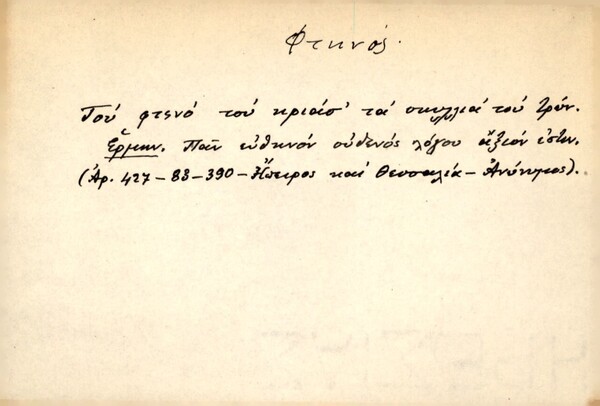 Φτηνός.
Τού φτενό τού κριάσ' τά σκυλλιά τού τρών.
Ἑρμην. Πᾶν εὐθηνόν οὐδενός λόγου ἄξιόν ἐστιν.
(Ἀρ. 427-83-390-Ἤπειρος καί Θεσσαλία-Ἀνώνυμος).